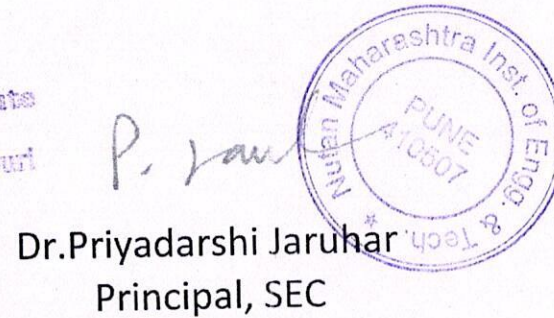 Nutan Maharashtra Inst. of Engg. & Tech. *
PUNE
410507
P. Jaru
Dr.Priyadarshi Jaruhar
Principal, SEC